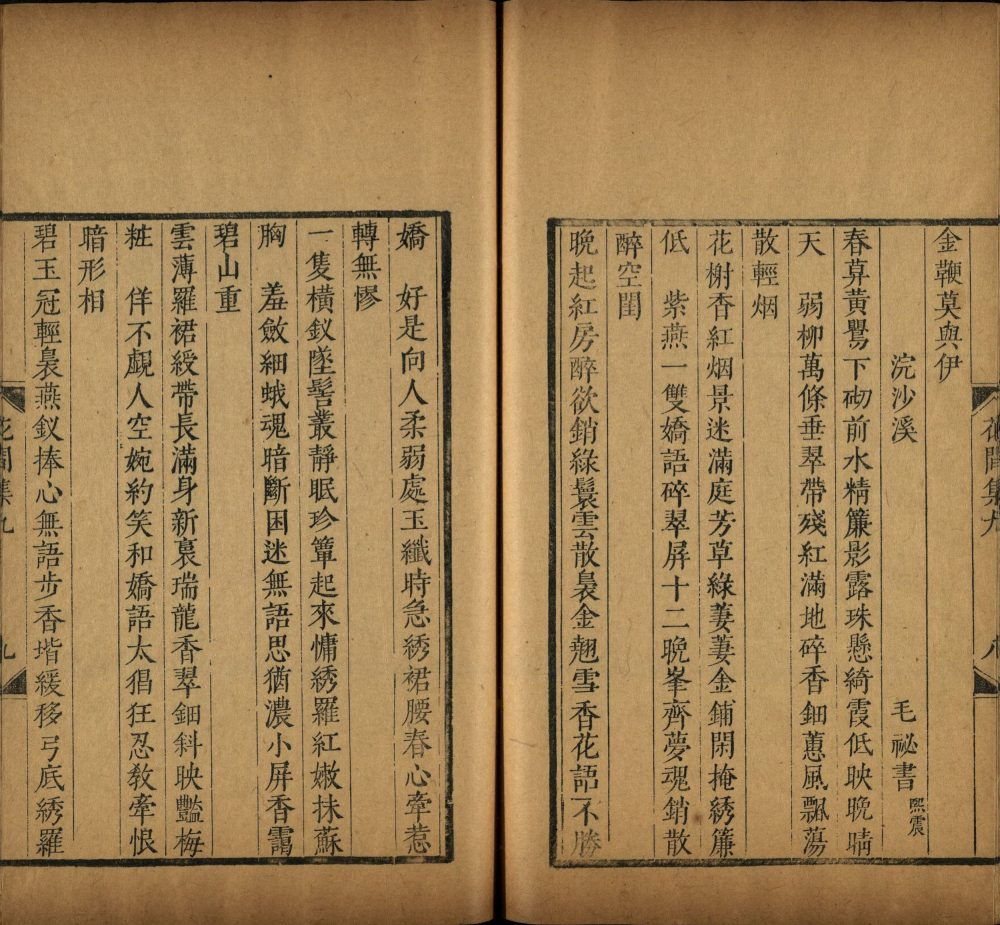 金鞭莫與伊
浣沙溪　毛祕書熙震
春暮黃鸎下砌前水精簾影露珠懸綺霞低映晩晴
天　弱柳萬條垂翠帶殘紅滿地碎香鈿蕙風飄蕩
散輕烟
花榭香紅烟景迷滿庭芳草綠萋萋金鋪閑掩綉簾
低　紫燕一雙嬌語碎翠屏十二晩峯齊夢魂銷散
醉空閨
晩起紅房醉欲銷綠鬟雲散裊金翹雪香花語不勝
嬌　好是向人柔弱處玉纖時急綉裙腰春心牽惹
轉無憀
一隻橫釵墜髻叢靜眠珍簟起來慵綉羅紅嫩抹蘇
胸　羞斂細蛾魂暗斷困迷無語思猶濃小屏香靄
碧山重
雲薄羅裙綬帶長滿身新裛瑞龍香翠鈿斜映豔梅
粧　佯不覷人空婉約笑和嬌語太猖狂忍教牽恨
暗形相
碧玉冠輕裊燕釵捧心無語步香堦緩移弓底綉羅
花間集九
九